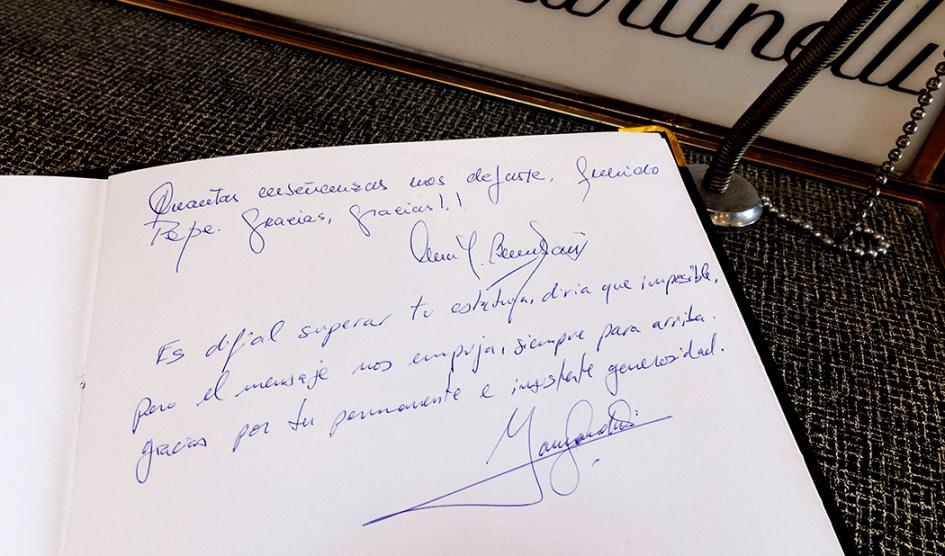 artinelli
Cuantas enseñanzas nos dejaste, querido
Pepe. Gracias, gracias!!
Es difícil superar tu estatura, diría que imposible,
pero el mensaje nos empuja, siempre para arriba.
gracias por tu permanente e insistente generosidad.